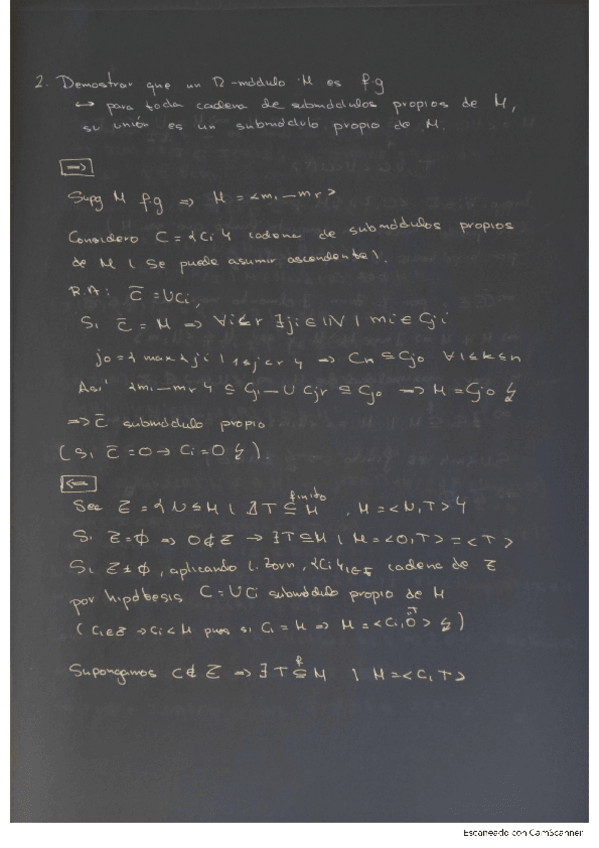 2. Demostrar que un R-módulo M es f.g
↔ para toda cadena de submódulos propios de M,
su unión es un submódulo propio de M.
⇒
Supg M f.g ⇒ M = <m₁ — mᵣ>
Considero C = {Ci} cadena de submódulos propios
de M (Se puede asumir ascendente).
R.A: C̄ = UCi,
Si C̄ = M ⇒ ∀i≤r ∃ji ∈ ℕ | mi ∈ Cji
jo = { max { ji | 1≤j≤r } ⇒ Cn ⊆ Cjo ∀1≤k≤n
Así {m₁ — mᵣ} ⊆ Cj₁ — U Cjr ⊆ Cjo ⇒ M = Cjo ↯
⇒ C̄ submódulo propio
(Si C̄ = 0 → Ci = 0 ↯).
⇐
Sea Σ = { N ≤ M | ∄ T ⊆ M finito, M = <N, T> }
Si Σ = ∅ ⇒ 0 ∉ Σ → ∃ T ⊆ M | M = <0, T> = <T>
Si Σ ≠ ∅, aplicando L. Zorn, {Ci}i∈I cadena de Σ
por hipótesis C = UCi submódulo propio de M
(Ci ∈ Σ → Ci < M pues si Ci = M ⇒ M = <Ci, 0> ↯)
Supongamos C ∉ Σ ⇒ ∃ T ⊆ M | M = <C, T>
Escaneado con CamScanner